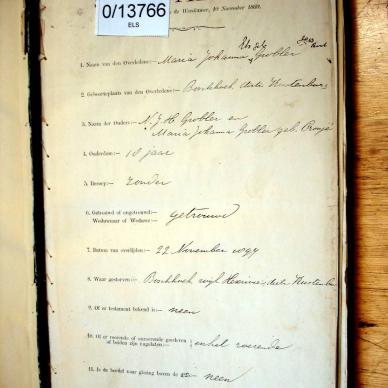 0/13766
ELS
de Weeskamer, 10 November 1869.
Els Sels
1. Naam van den Overledene:— Maria Johanna Grobler
2. Geboorteplaats van den Overledene:— Boekhoek, distr. Rustenburg
3. Namen der Ouders:— N. J. H. Grobler en
Maria Johanna Grobler geb. Cronjé
4. Ouderdom:— 18 jaar
5. Beroep:— Zonder
6. Getrouwd of ongetrouwd:—
Weduwnaar of Weduwe:— getrouwd
7. Datum van overlijden:— 22 November 1897
8. Waar gestorven:— Boekhoek wyk Hexrivier distr. Rustenburg
9. Of er testament bekend is:— neen
10. Of er roerende of onroerende goederen
of beiden zijn nagelaten:— enkel roerende
11. Is de boedel naar gissing boven de neen